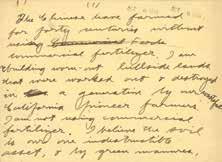 The Chinese have farmed
for forty centuries without
using
commercial fertilizer. I am
building worn-out hillside lands
that were worked out & destroyed
in a generation by our
California Pioneer farmers.
I am not using commercial
fertilizer. I believe the soil
is our one indestructible
asset, & by green manures,